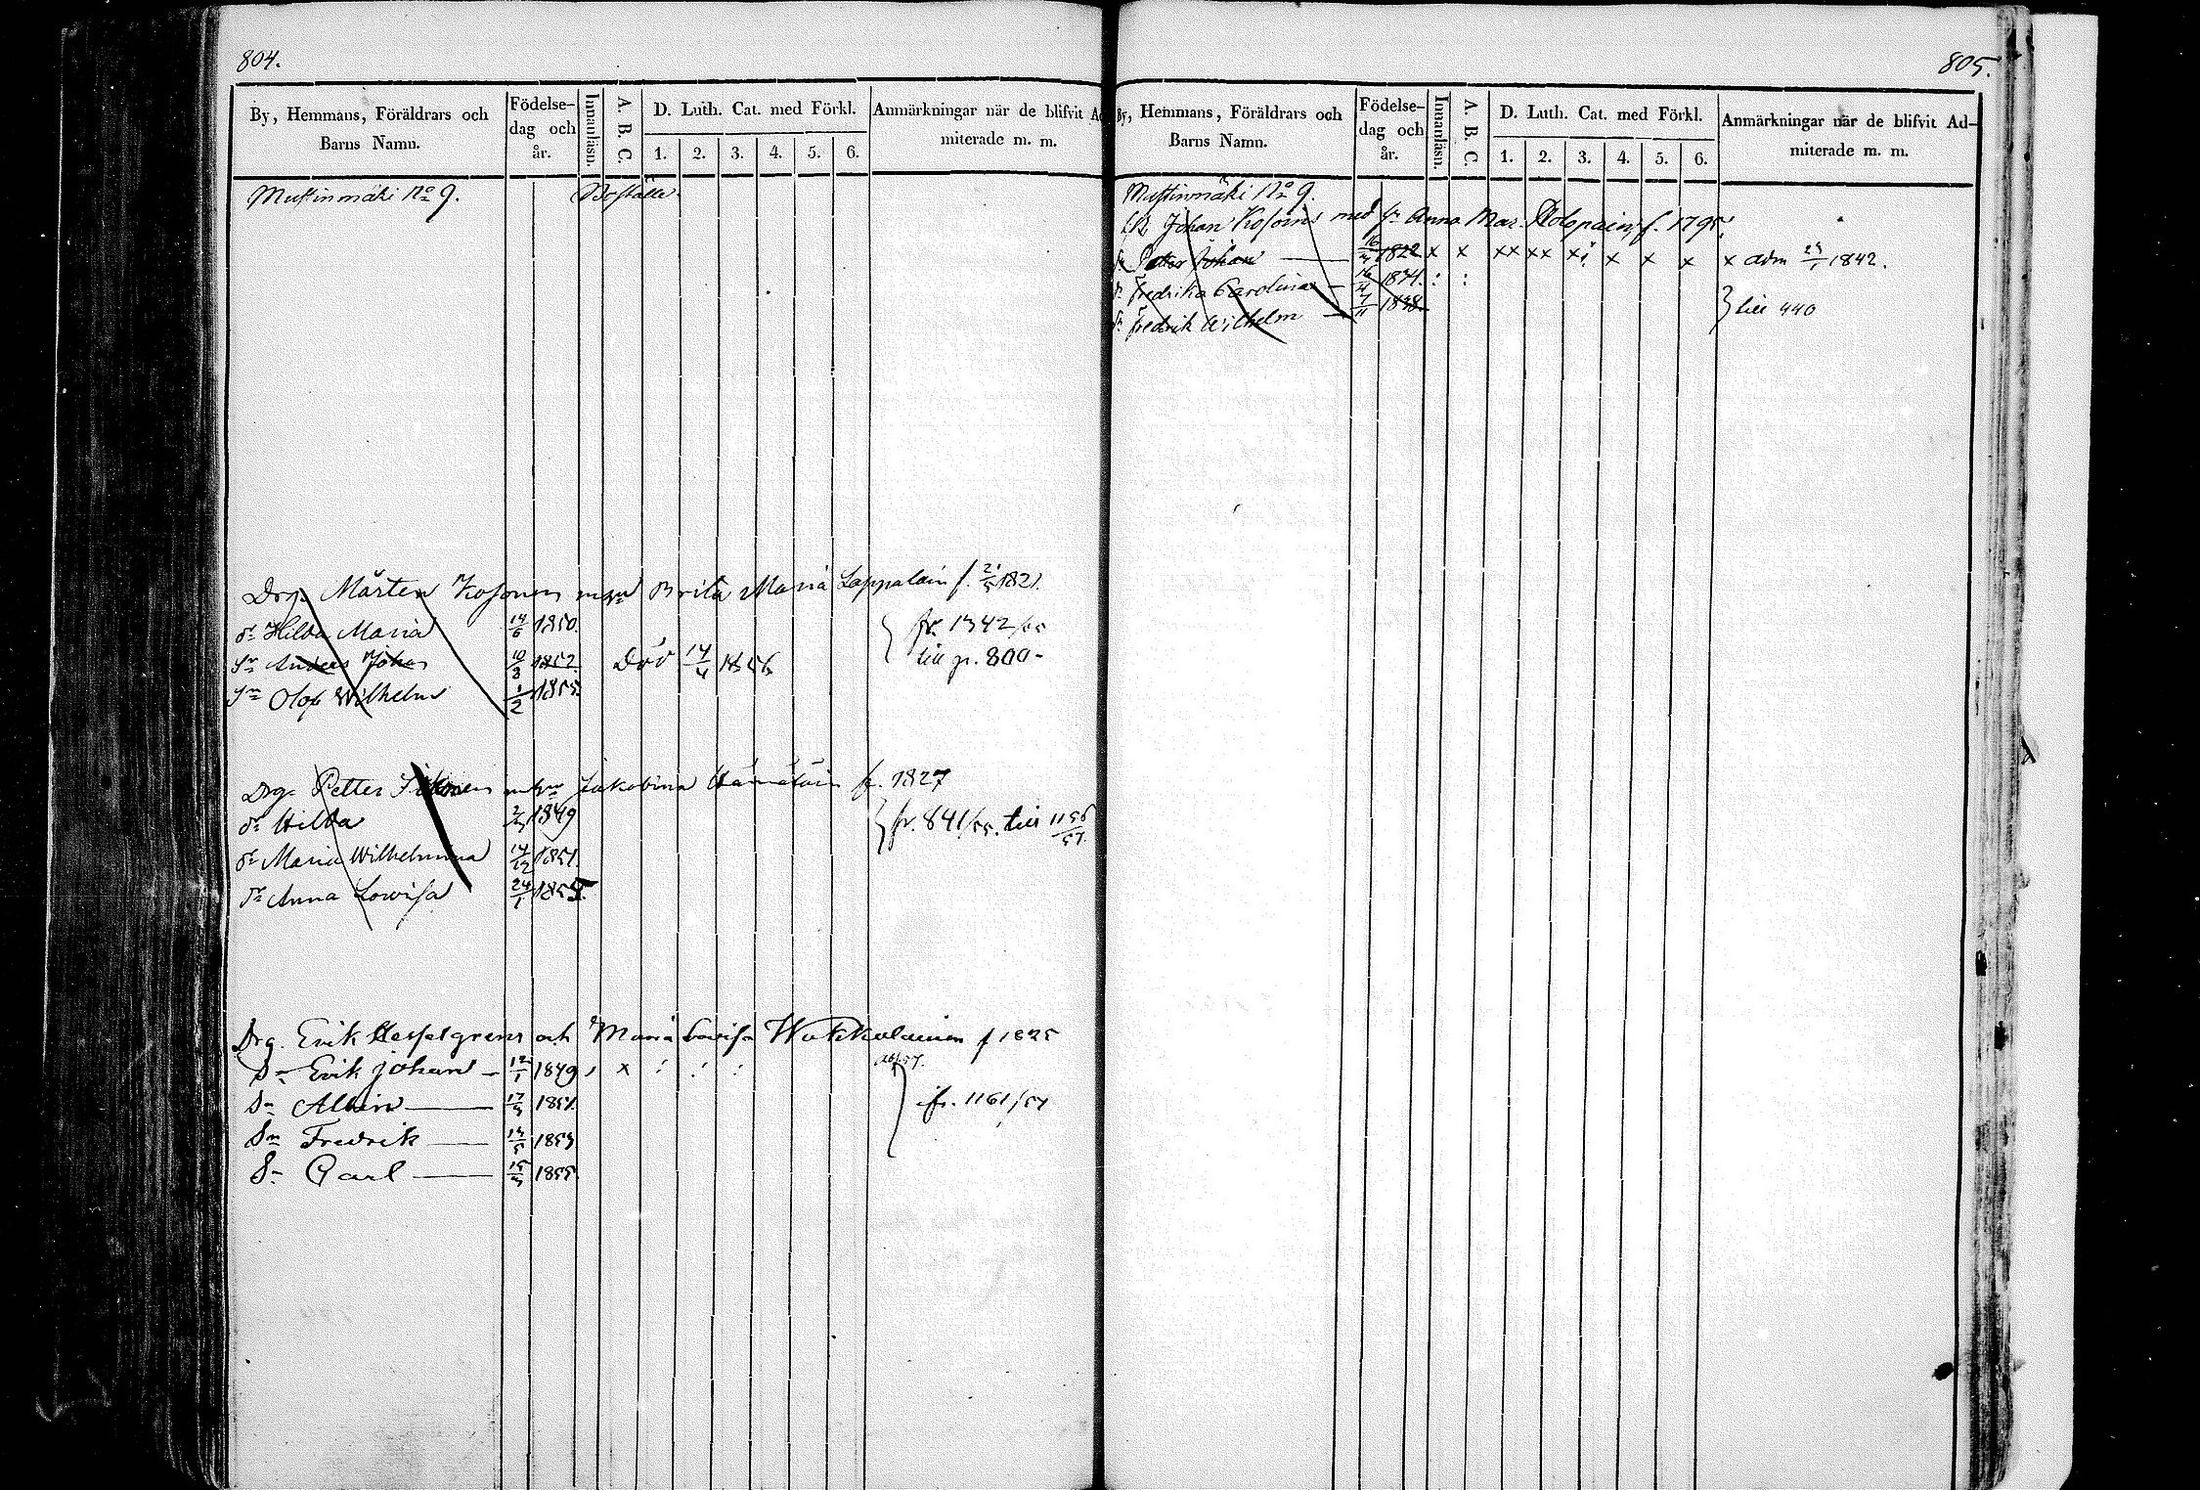 804.
By, Hemmans, Föräldrars och Barns Namn.
Födelse-dag och år.
Innanläsn.
A. B. C.
D. Luth. Cat. med Förkl.
1. 2. 3. 4. 5. 6.
Anmärkningar när de blifvit Ad
miterade m. m.
Mustinmäki No 9. Boställe.
Drg. Mårten Kosonen Brita Maria Lappalain f. 21/5 1821.
dr Hilda Maria 14/6 1850. fr. 1342/55
Sn Anders Johan 10/8 1852. Död 14/4 1856 till p. 800
Sn Olof Wilhelm 1/2 1855.
Drg. Petter Jakobina Hämäläin f. 1827
dr Hilda 1849 fr. 841/55. till 1156/57.
dr Maria Wilhelmina 14/12 1851.
dr Anna Lowisa 24/1 1855.
Drg. Erik Hesselgren och Maria Lovisa f 1825
Sn Erik Johan 12/1 1849 x
Sn Albin 1851. fr. 1161/57
Sn Fredrik 1853
Sn Carl 1855.
805.
By, Hemmans, Föräldrars och Barns Namn.
Födelse-dag och år.
Innanläsn.
A. B. C.
D. Luth. Cat. med Förkl.
1. 2. 3. 4. 5. 6.
Anmärkningar när de blifvit Ad-
miterade m. m.
Mustinmäki No 9.
Johan Kosoin med hr Anna Mar. f. 1795.
Sn Petter Johan 1822 x x xx xx x x x x x adm 1842.
dr Fredrika Carolina 16/4 1834. : :
Sn Fredrik Wilhelm 7/11 1838. till 440